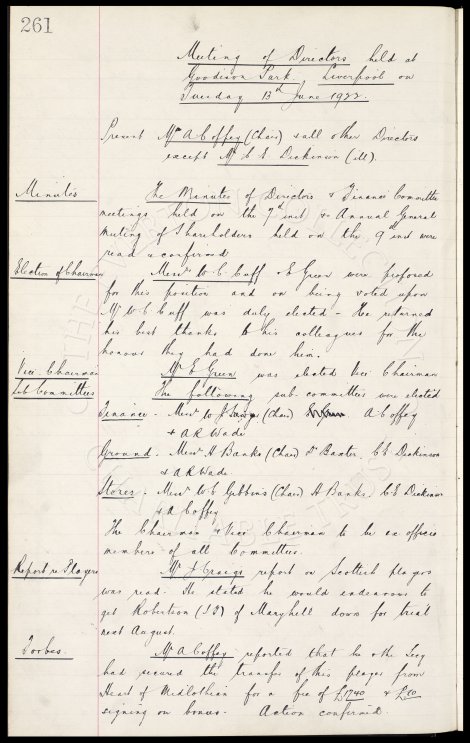 261
Meeting of Directors held at
Goodison Park, Liverpool on
Tuesday 13th June 1922.
Present Mr A Coffey (Chair) & all other Directors
except Mr C E Dickinson (ill).
Minutes
The Minutes of Directors & Finance Committee
meetings held on the 7th inst & Annual General
Meeting of Shareholders held on the 9th inst were
read & confirmed
Election of Chairman
Messrs W.C. Cuff & E Green were proposed
for this position and on being voted upon
Mr W C Cuff was duly elected - He returned
his best thanks to his colleagues for the
honour they had done him.
Vice-Chairman
Mr E Green was elected Vice Chairman
Sub Committees
The following sub-committees were elected
Finance - Messrs W J (Chair) A Coffey
& A R Wade
Ground. Messrs H Banks (Chair) Dr Baxter, C E Dickinson
& A R Wade
Stores. Messrs W E Gibbins (Chair) H Banks, C E Dickinson
& A Coffey
The Chairman & Vice Chairman to be ex officio
members of all Committees.
Report re Players
Mr J Craigs report on Scottish players
was read. He stated he would endeavour to
get Robertson of Maryhill down for trial
next August.
Forbes.
Mr A Coffey reported that he & the Secy
had secured the transfer of this player from
Heart of Midlothian for a fee of £1740 &
signing on bonus. Action confirmed.